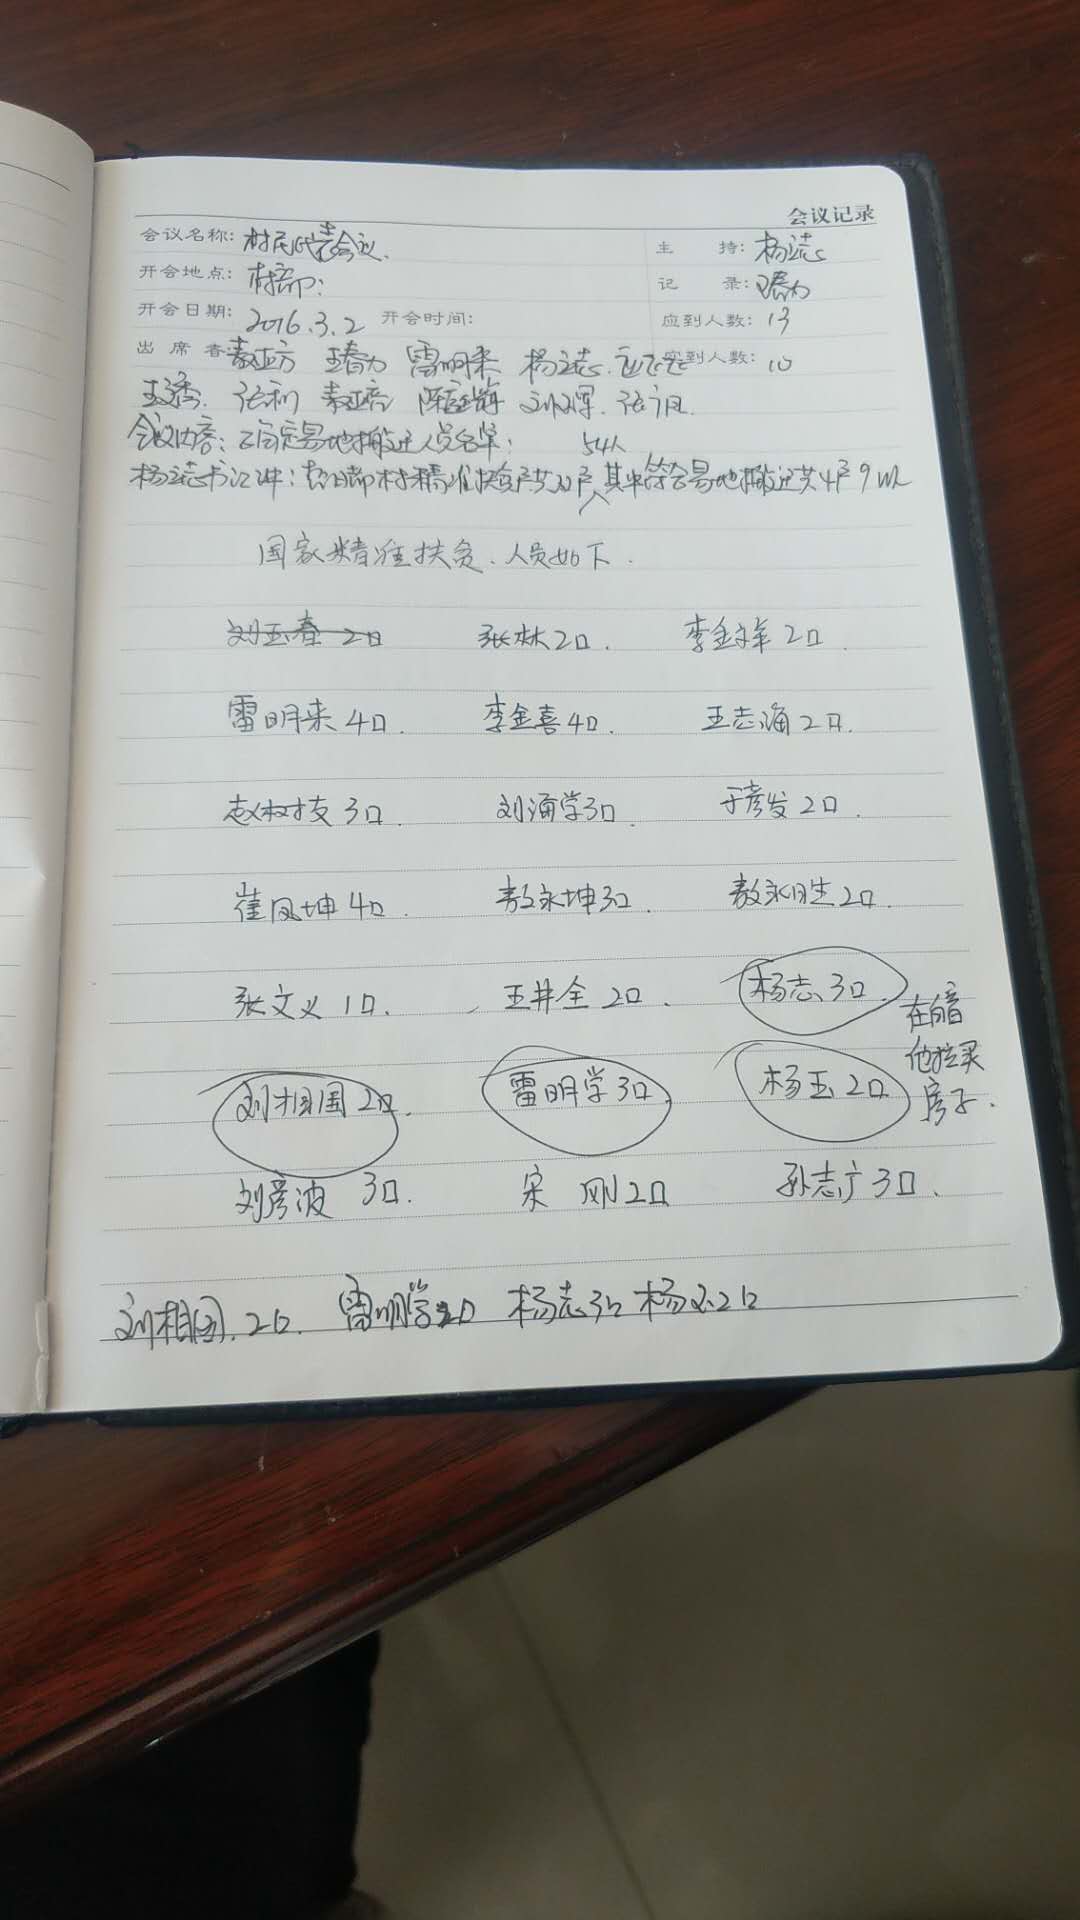 会议记录
会议名称: 村民代表会议. 主 持: 杨志
开会地点: 村部: 记 录:
开会日期: 2016.3.2 开会时间: 应到人数: 13
出 席 者: 王春力 雷明来 杨志 实到人数: 10
张利
会议内容: 确定易地搬迁人员名单: 54人
杨志书记讲: 村精准扶贫户共 户 其中符合易地搬迁共4户9人
国家精准扶贫、人员如下.
刘玉春 2口 张林 2口. 李金祥 2口.
雷明来 4口. 李金喜 4口. 王志海 2口.
赵树支 3口. 刘海学 3口. 于彦发 2口.
崔凤坤 4口. 敖永坤 3口. 敖永胜 2口.
张文义 1口. 王井全 2口. 杨志 3口. 在
他拉买
房子.
刘相国 2口. 雷明学 3口. 杨玉 2口.
刘彦波 3口. 宋刚 2口 孙志广 3口.
刘相国. 2口. 雷明学 口 杨志 3口 杨玉 2口